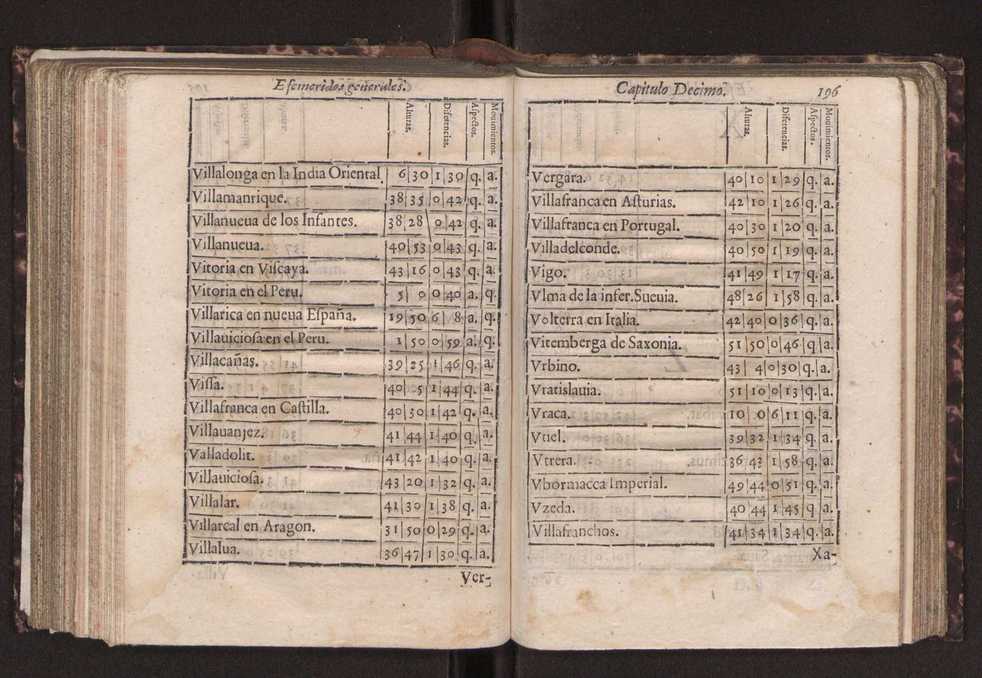 Efemeridos generales.
Alturas. Diferencias. Aspectos. Mouimientos.
Villalonga en la India Oriental. 6 30 1 30 q. a.
Villamanrique. 38 35 0 42 q. a.
Villanueua de los Infantes. 38 28 0 42 q. a.
Villanueua. 40 53 0 43 q. a.
Vitoria en Viscaya. 43 16 0 43 q. a.
Vitoria en el Peru. 5 0 0 40 a. q.
Villarica en nueua España. 19 50 6 8 a. q.
Villauiciosa en el Peru. 1 50 0 59 a. q.
Villacañas. 39 25 1 46 q. a.
Vissa. 40 5 1 44 q. a.
Villafranca en Castilla. 40 30 1 42 q. a.
Villauanjez. 41 44 1 40 q. a.
Valladolit. 41 42 1 40 q. a.
Villauiciosa. 43 20 1 32 q. a.
Villalar. 41 30 1 38 q. a.
Villareal en Aragon. 31 50 0 29 q. a.
Villalua. 36 47 1 30 q. a.
Ver-
Capitulo Decimo. 196
Alturas. Diferencias. Aspectos. Mouimientos.
Vergara. 40 10 1 29 q. a.
Villafranca en Asturias. 42 10 1 26 q. a.
Villafranca en Portugal. 40 30 1 20 q. a.
Villadelconde. 40 50 1 19 q. a.
Vigo. 41 49 1 17 q. a.
Vlma de la infer. Sueuia. 48 26 1 58 q. a.
Volterra en Italia. 42 40 0 36 q. a.
Vitemberga de Saxonia. 51 50 0 46 q. a.
Vrbino. 43 4 0 30 q. a.
Vratislauia. 51 10 0 13 q. a.
Vraca. 10 0 6 11 q. a.
Vuel. 39 32 1 34 q. a.
Vtrera. 36 43 1 58 q. a.
Vbormacca Imperial. 49 44 0 51 q. a.
Vzeda. 40 44 1 45 q. a.
Villafranchos. 41 34 1 34 q. a.
Xa-